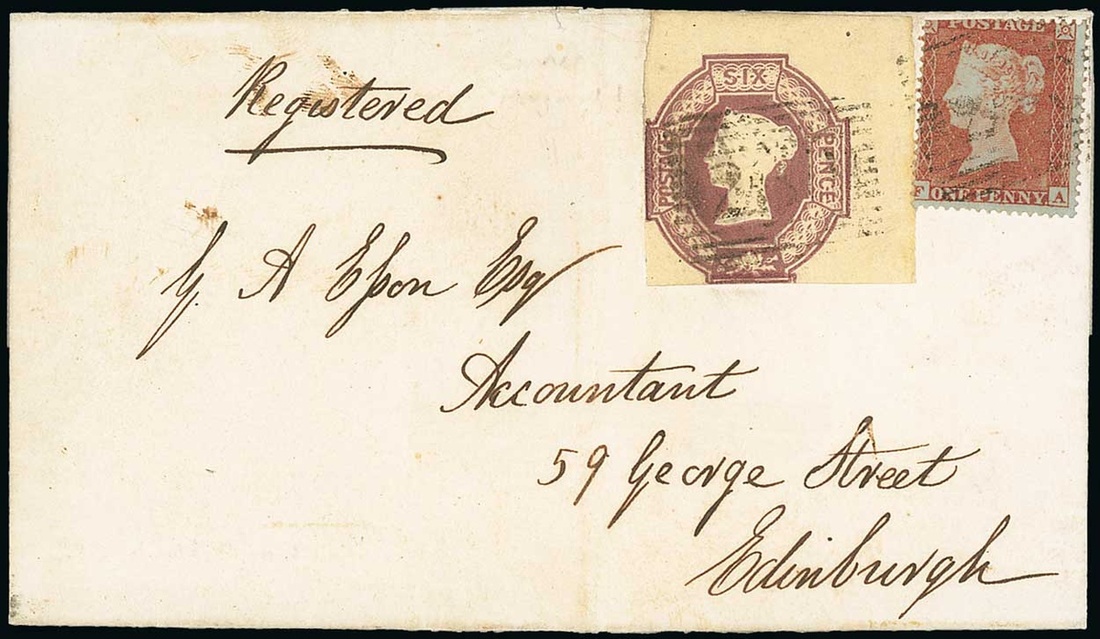 Registered
SIX
POSTAGE
PENCE
POSTAGE
F ONE PENNY A
A Esson Esq
Accountant
59 George Street
Edinburgh